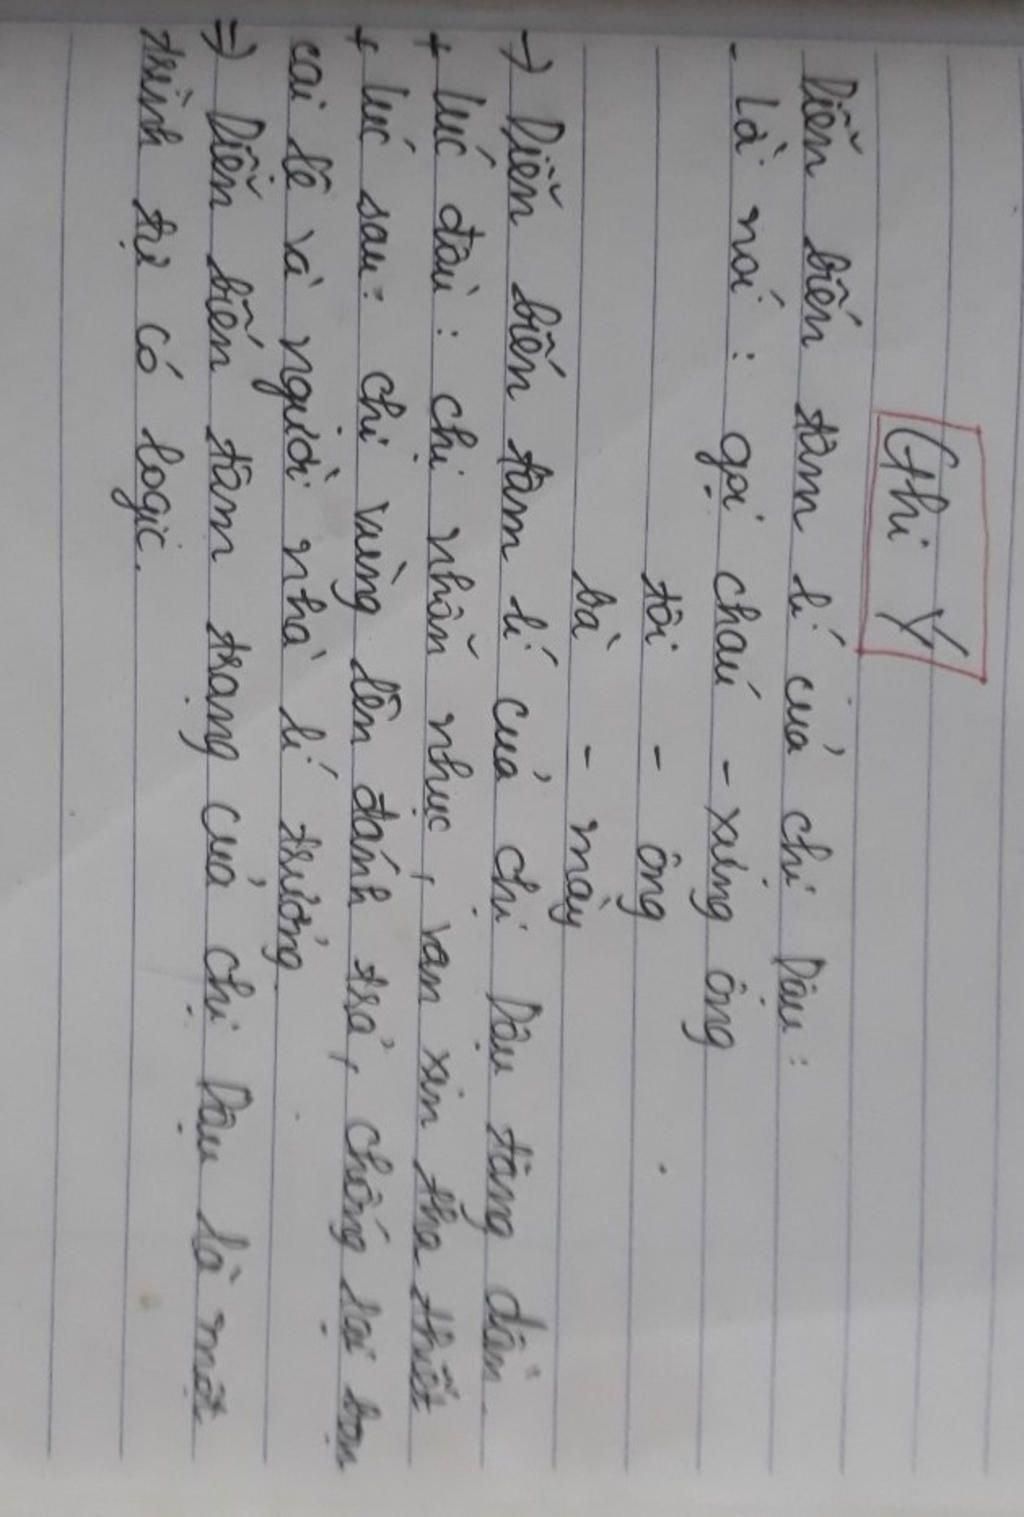 Ghi Ý
Diễn biến tâm lí của chị Dậu:
- Lời nói: gọi cháu - xưng ông
tôi - ông
bà - mày
→ Diễn biến tâm lí của chị Dậu tăng dần.
+ lúc đầu: chị nhẫn nhục, van xin tha thiết
+ lúc sau: chị vùng lên đánh trả, chống lại bọn
cai lệ và người nhà lí trưởng
⇒ Diễn biến tâm trạng của chị Dậu là một
trình tự có logic.